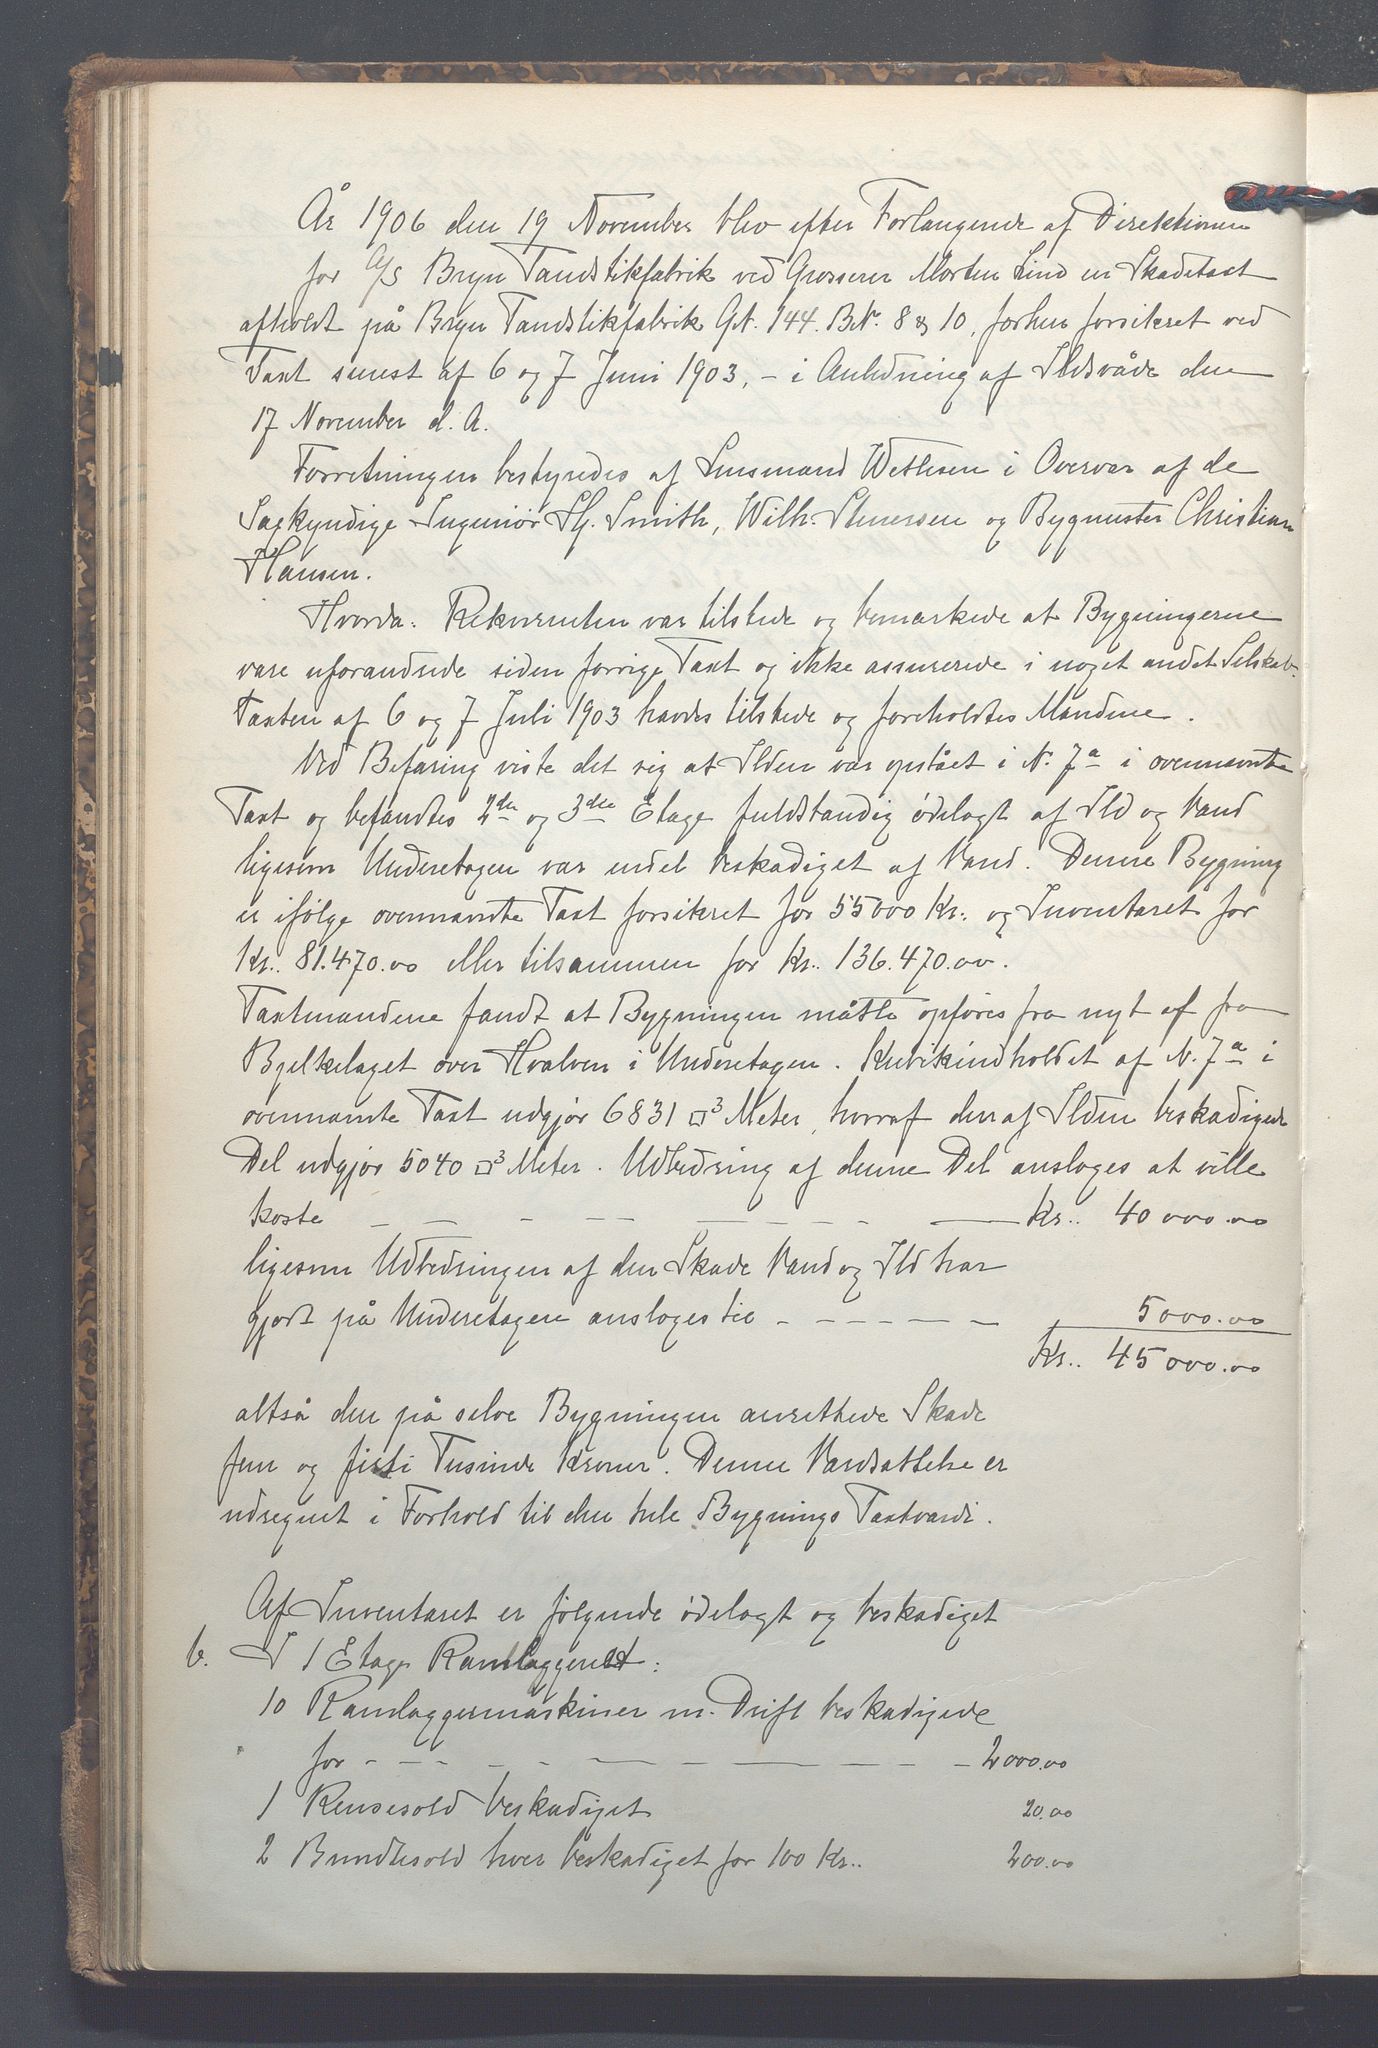 År 1906 den 19 November blev efter Forlangende af Direktionen
for A/S Bryn Tændstikfabrik ved Grosserer Morten Lind en Skadetaxt
afholdt på Bryn Tændstikfabrik G.N. 144. B.Nr. 8 & 10, forhen forsikret ved
Taxt senest af 6 og 7 Juni 1903, - i Anledning af Ildsvåde den
17 November d. A.
Forretningen bestyredes af Lensmand Wetlesen i Overvær af de
Sagkyndige Ingeniør Hj. Smith, Wilh. Stenersen og Bygmester Christian
Hansen.
Hvorda: Rekvirenten var tilstede og bemærkede at Bygningerne
vare uforandrede siden forrige Taxt og ikke assurerede i noget andet Selskab.
Taxten af 6 og 7 Juli 1903 havdes tilstede og foreholdtes Mændene.
Ved Befaring viste det sig at Ilden var opstået i N. 7a i ovennævnte
Taxt og befandtes 2den og 3die Etage fuldstændig ødelagt af Ild og Vand
ligesom Underetagen var endel beskadiget af Vand. Denne Bygning
er ifølge ovennævnte Taxt forsikret for 55000 Kr. og Inventaret for
Kr. 81.470.00 eller tilsammen for Kr. 136.470.00.
Taxtmændene fandt at Bygningen måtte opføres fra nyt af fra
Bjelkelaget over Hvælven i Underetagen. Kubikindholdet af N. 7a i
ovennævnte Taxt udgjør 6831 □3 Meter, hvoraf den af Ilden beskadigede
Del udgjør 5040 □3 Meter. Udbedring af denne Del ansloges at ville
koste - - - - - - - - - Kr. 40000.00
ligesom Udbedringen af den Skade Vand og Ild har
gjort på Underetagen ansloges til - - - - - - 5000.00
Kr. 45000.00
altså den på selve Bygningen anrettede Skade
fem og firti Tusinde Kroner. Denne Værdsættelse er
udregnet i Forhold til den hele Bygnings Taxtværdi.
Af Inventaret er følgende ødelagt og beskadiget
b. I 1 Etage Ramlæggeriet:
10 Ramlæggermaskiner m. Drift beskadigede
for - - - - - - - - - 2000.00
1 Rensesold beskadiget 20.00
2 Bundtesold hver beskadiget for 100 Kr. 200.00